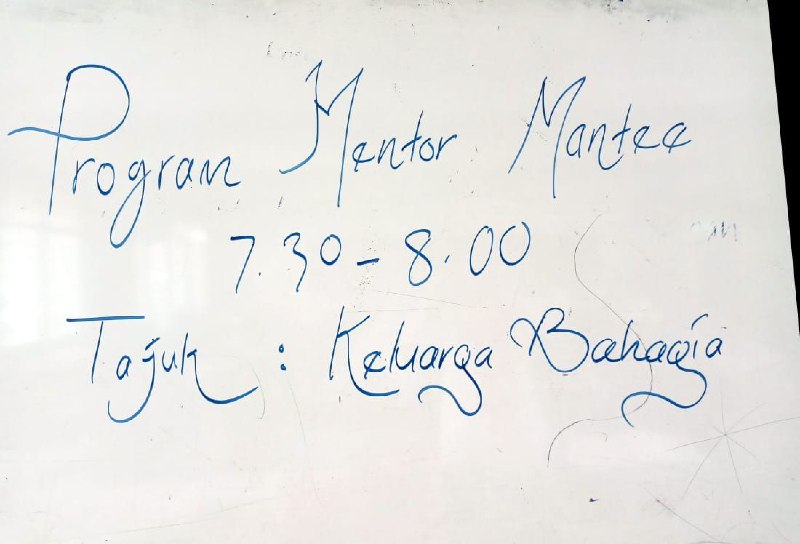 Program Mentor Mantee
7.30 - 8.00
Tajuk : Keluarga Bahagia